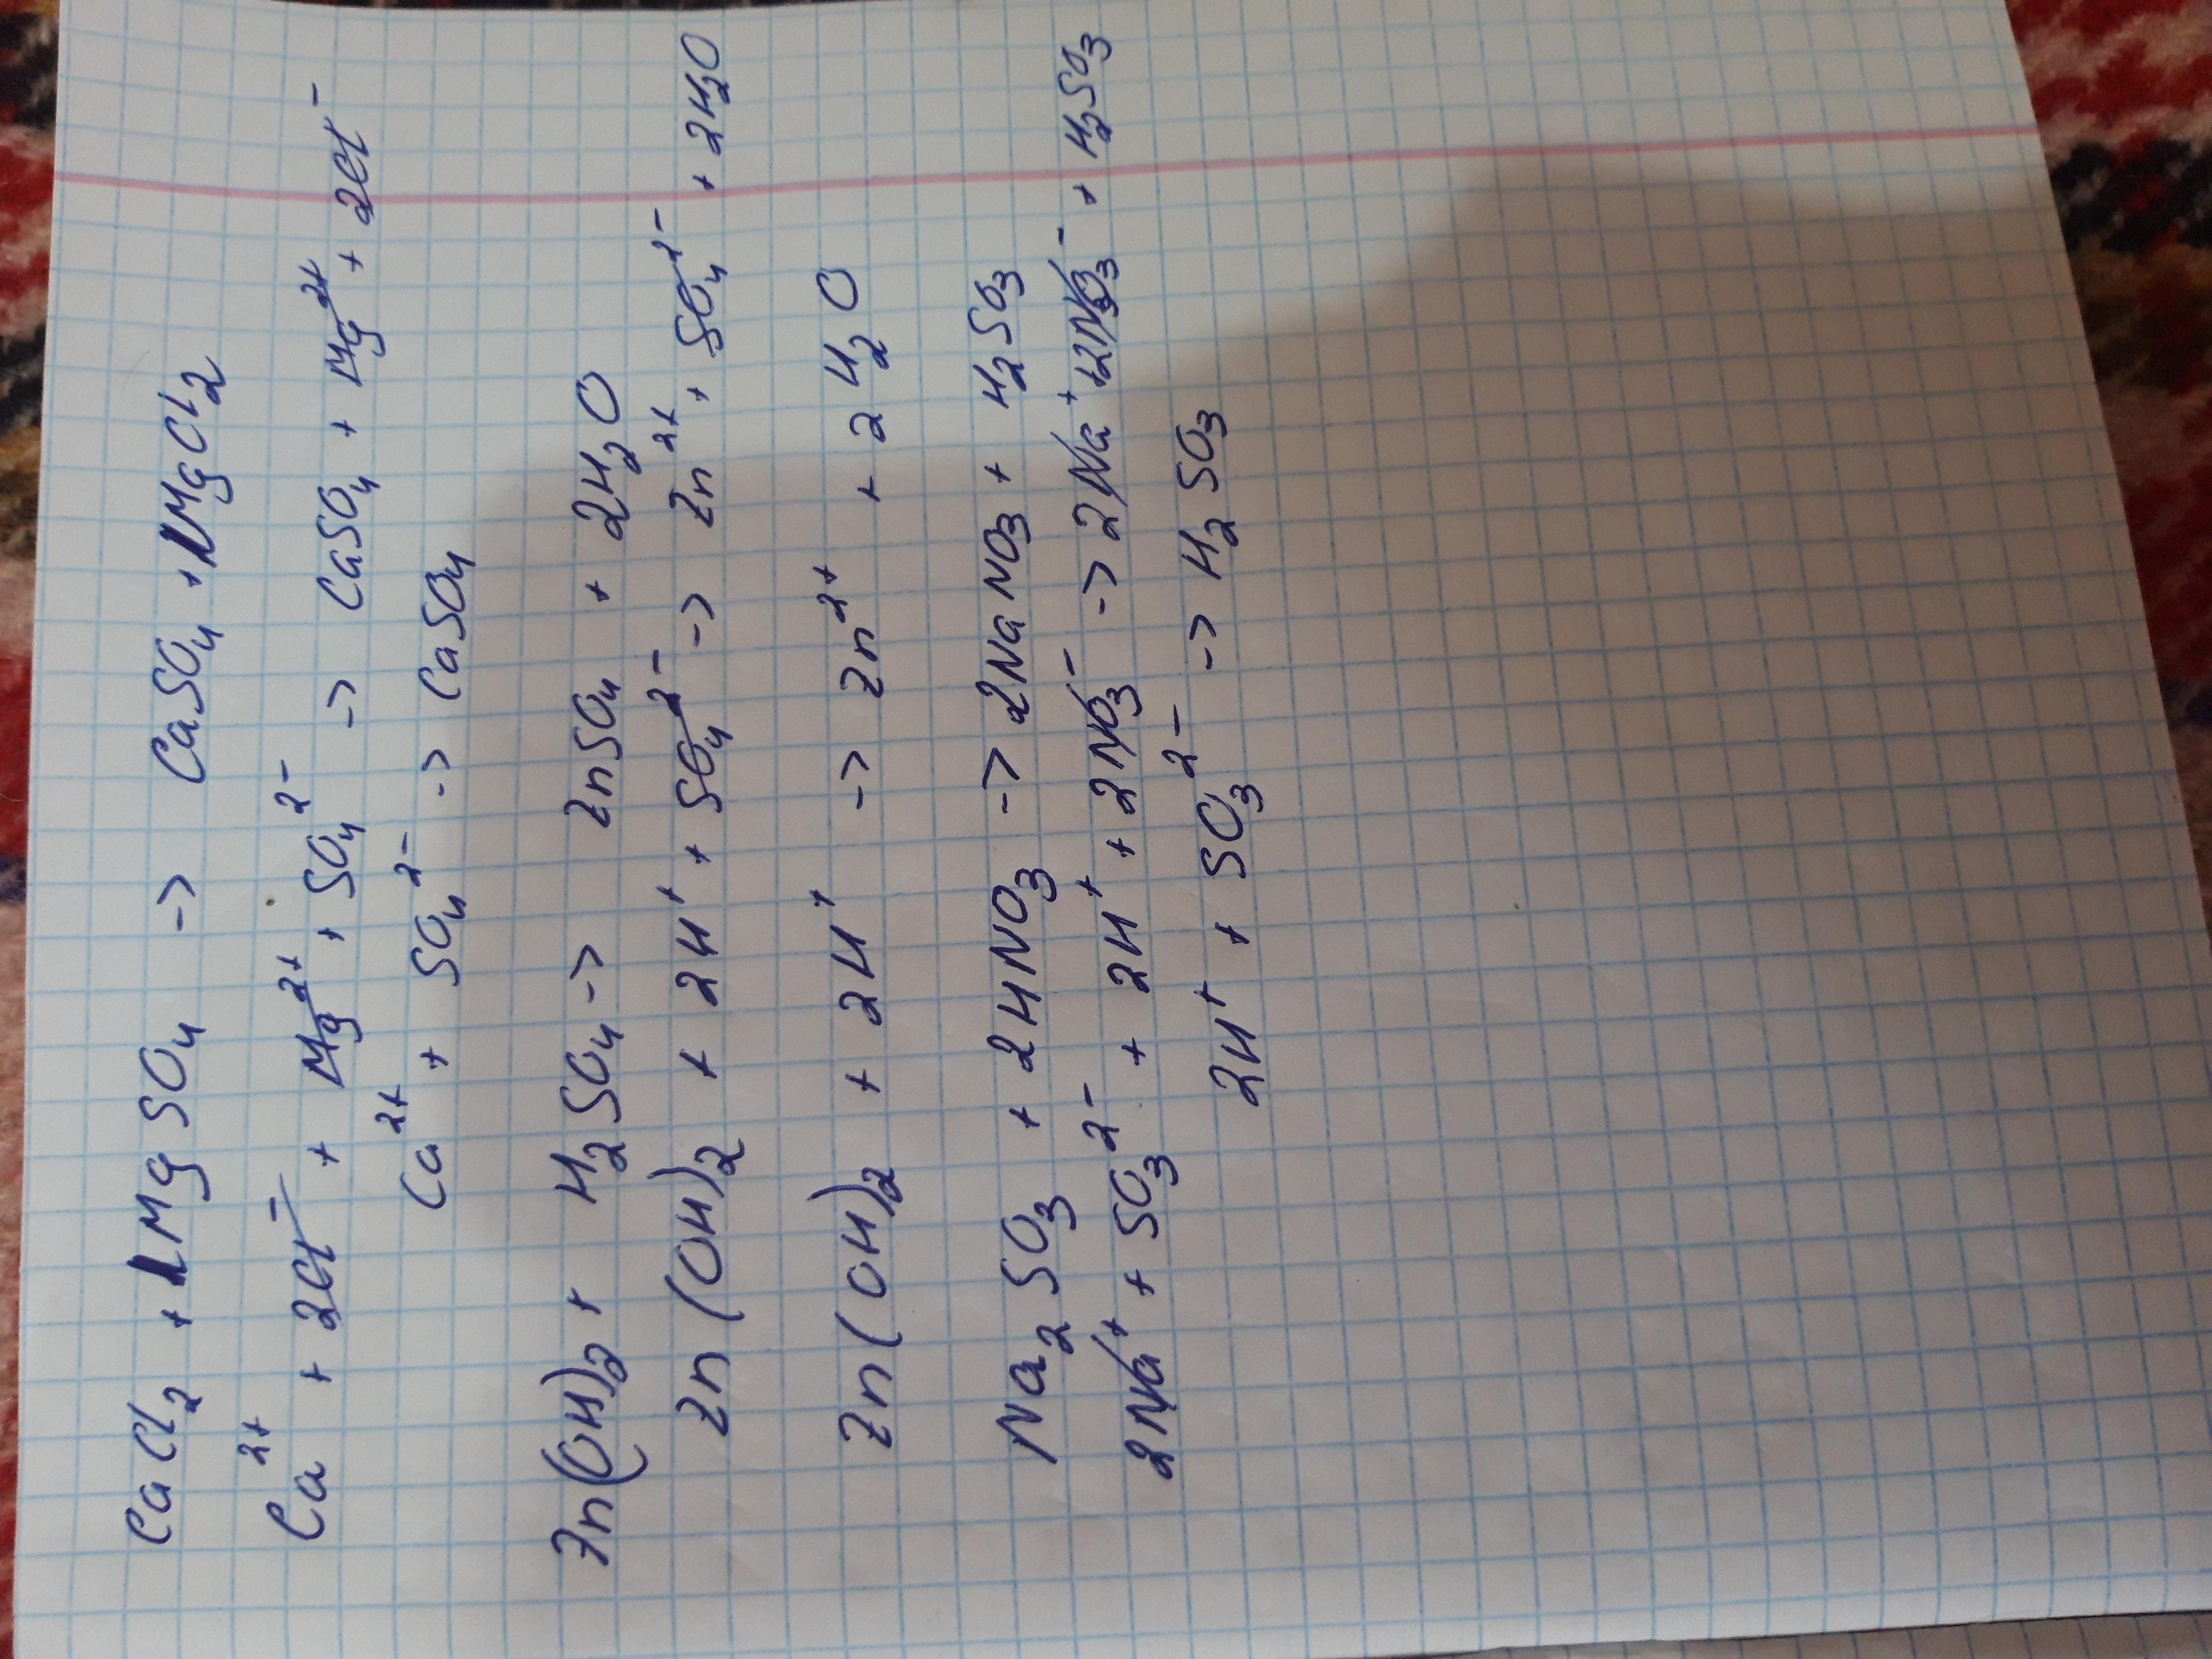 CaCl₂ + MgSO₄ -> CaSO₄ + MgCl₂
Ca²⁺ + 2Cl⁻ + Mg²⁺ + SO₄²⁻ -> CaSO₄ + Mg²⁺ + 2Cl⁻
Ca²⁺ + SO₄²⁻ -> CaSO₄
Zn(OH)₂ + H₂SO₄ -> ZnSO₄ + 2H₂O
Zn(OH)₂ + 2H⁺ + SO₄²⁻ -> Zn²⁺ + SO₄²⁻ + 2H₂O
Zn(OH)₂ + 2H⁺ -> Zn²⁺ + 2H₂O
Na₂SO₃ + 2HNO₃ -> 2NaNO₃ + H₂SO₃
2Na⁺ + SO₃²⁻ + 2H⁺ + 2NO₃⁻ -> 2Na⁺ + 2NO₃⁻ + H₂SO₃
2H⁺ + SO₃²⁻ -> H₂SO₃